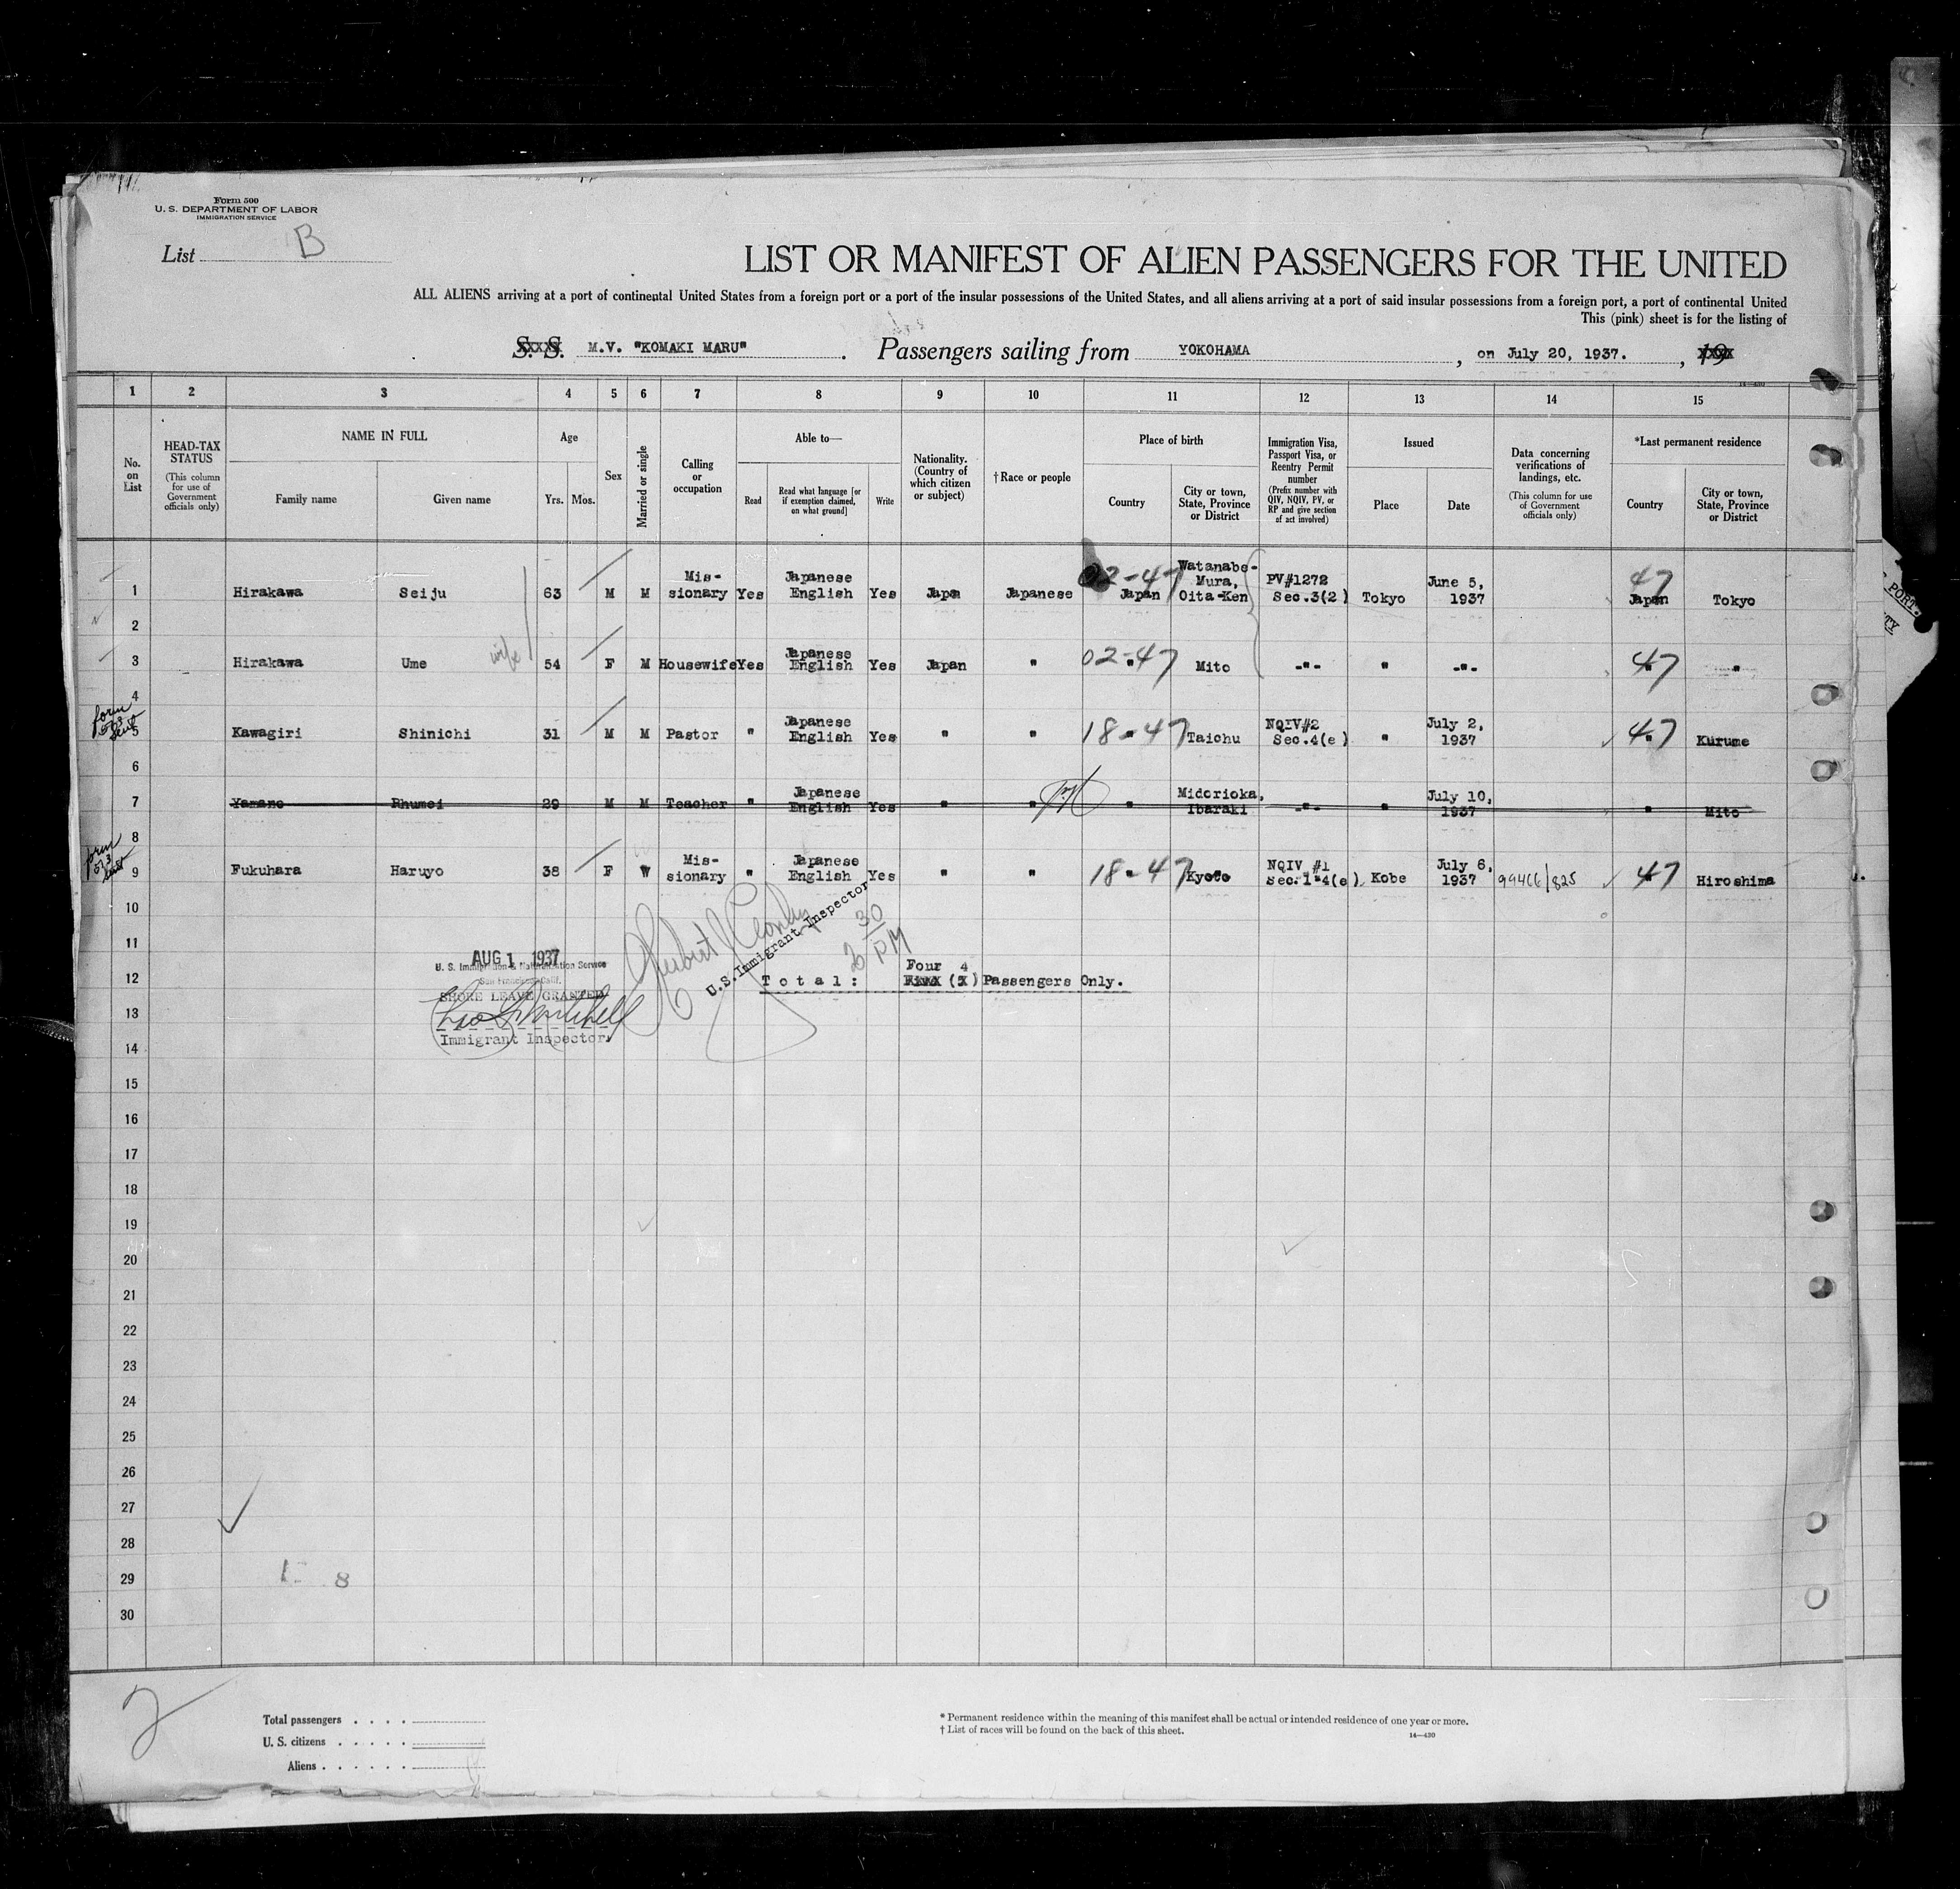 Form 500
U. S. DEPARTMENT OF LABOR
IMMIGRATION SERVICE
List B
LIST OR MANIFEST OF ALIEN PASSENGERS FOR THE UNITED
ALL ALIENS arriving at a port of continental United States from a foreign port or a port of the insular possessions of the United States, and all aliens arriving at a port of said insular possessions from a foreign port, a port of continental United
This (pink) sheet is for the listing of
S. S. M.V. "KOMAKI MARU" . Passengers sailing from YOKOHAMA , on July 20, 1937. , 19
14—430
1 2 3 4 5 6 7 8 9 10 11 12 13 14 15
No. on List
HEAD-TAX STATUS
(This column for use of Government officials only)
NAME IN FULL
Family name Given name
Age
Yrs. Mos.
Sex
Married or single
Calling or occupation
Able to—
Read
Read what language [or if exemption claimed, on what ground]
Write
Nationality. (Country of which citizen or subject)
†Race or people
Place of birth
Country
City or town, State, Province or District
Immigration Visa, Passport Visa, or Reentry Permit number
(Prefix number with QIV, NQIV, PV, or RP and give section of act involved)
Issued
Place Date
Data concerning verifications of landings, etc.
(This column for use of Government officials only)
*Last permanent residence
Country
City or town, State, Province or District
1 Hirakawa Seiju 63 M M Mis-sionary Yes Japanese English Yes Japan Japanese 02-47 Japan Watanabe-Mura, Oita-Ken PV#1272 Sec.3(2) Tokyo June 5, 1937 47 Japan Tokyo
2
3 Hirakawa Ume wife 54 F M Housewife Yes Japanese English Yes Japan " 02-47 " Mito -"- " -"- 47 " "
4
form 573 sent
5 Kawagiri Shinichi 31 M M Pastor " Japanese English Yes " " 18-47 " Taichu NQIV#2 Sec.4(e) " July 2, 1937 47 " Kurume
6
7 Yamane Rhumei 29 M M Teacher " Japanese English Yes " " " Midorioka, Ibaraki -"- " July 10, 1937 " Mito
8
form 573 sent
9 Fukuhara Haruyo 38 F W Mis-sionary " Japanese English Yes " " 18-47 " Kyoto NQIV #1 Sec.1-4(e) Kobe July 6, 1937 99466/825 47 " Hiroshima
10
11
12
13
14
15
16
17
18
19
20
21
22
23
24
25
26
27
28
29
30
AUG 1 1937
U. S. Immigration & Naturalization Service
San Francisco, Calif.
SHORE LEAVE GRANTED
Immigrant Inspector.
U.S.Immigrant Inspector
2 30 PM
Four 4
Total: (X) Passengers Only.
8
2
Total passengers . . . .
U. S. citizens . . . . .
Aliens . . . . . .
* Permanent residence within the meaning of this manifest shall be actual or intended residence of one year or more.
† List of races will be found on the back of this sheet.
14—430
PORT.